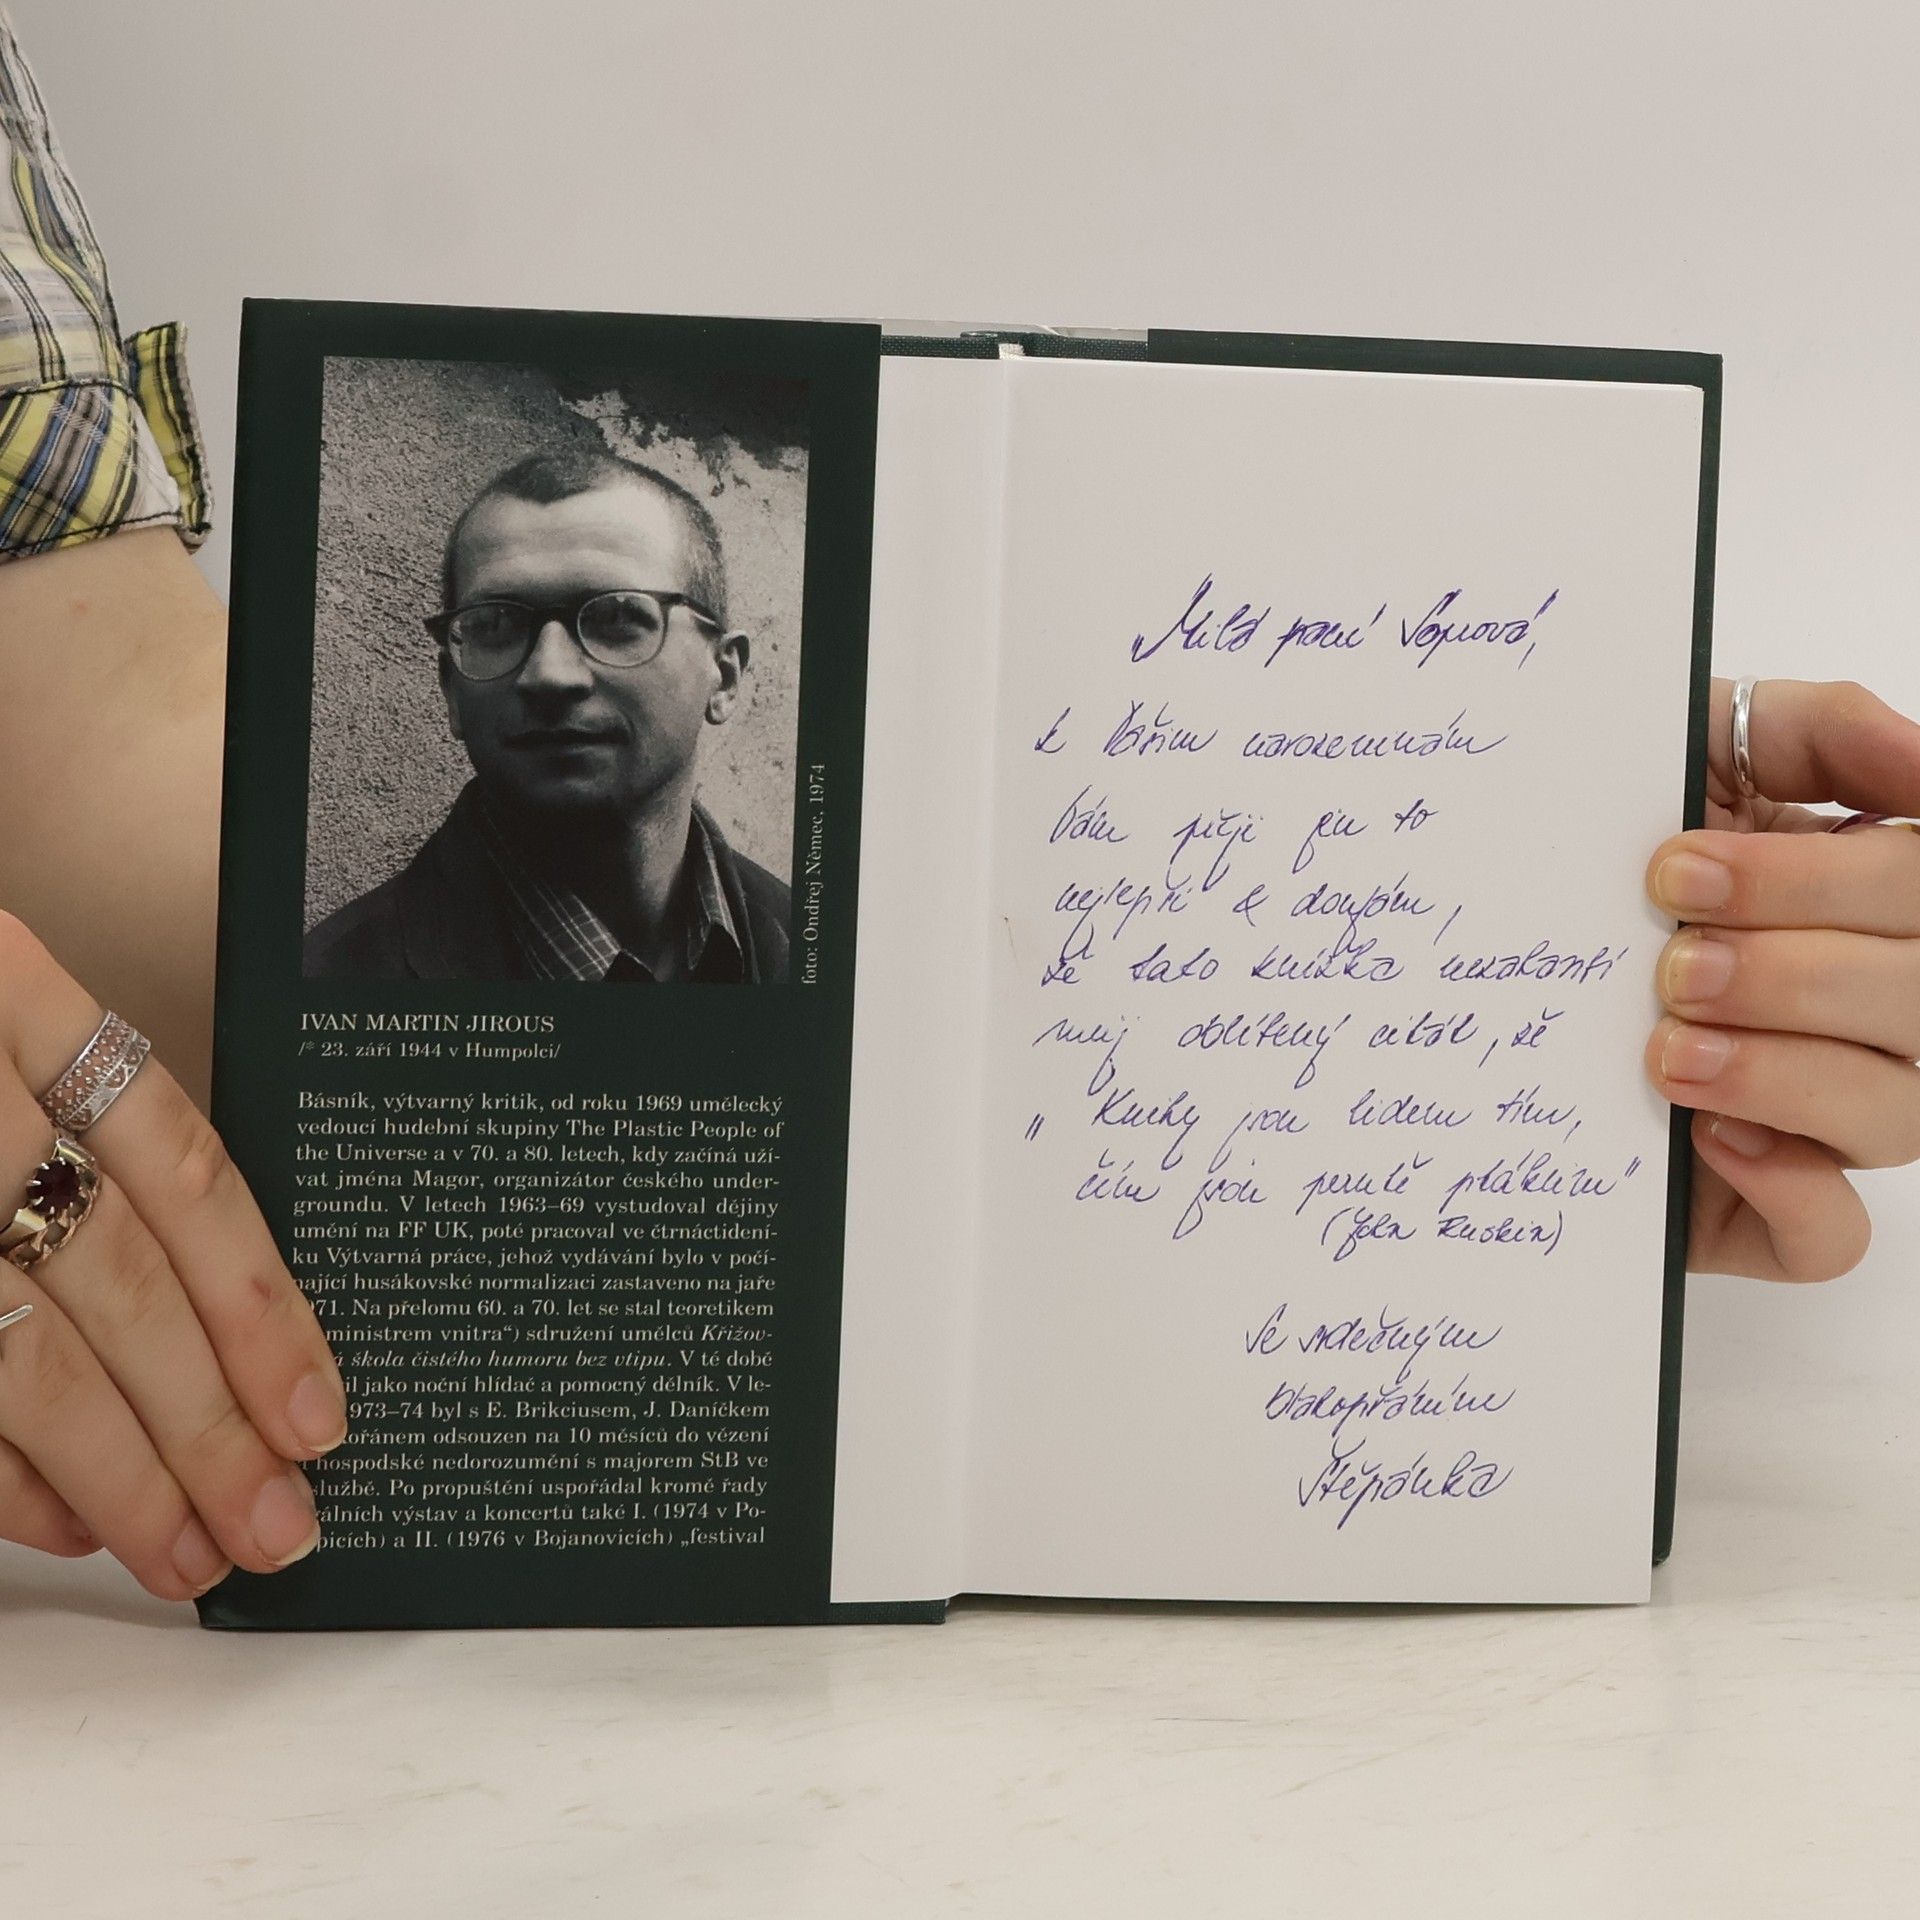 foto: Ondřej Němec, 1974
IVAN MARTIN JIROUS
/* 23. září 1944 v Humpolci/
Básník, výtvarný kritik, od roku 1969 umělecký
vedoucí hudební skupiny The Plastic People of
the Universe a v 70. a 80. letech, kdy začíná uží-
vat jména Magor, organizátor českého under-
groundu. V letech 1963–69 vystudoval dějiny
umění na FF UK, poté pracoval ve čtrnáctidení-
ku Výtvarná práce, jehož vydávání bylo v počí-
nající husákovské normalizaci zastaveno na jaře
71. Na přelomu 60. a 70. let se stal teoretikem
ministrem vnitra“) sdružení umělců Křižov-
á škola čistého humoru bez vtipu. V té době
il jako noční hlídač a pomocný dělník. V le-
973–74 byl s E. Brikciusem, J. Daníčkem
kořánem odsouzen na 10 měsíců do vězení
hospodské nedorozumění s majorem StB ve
službě. Po propuštění uspořádal kromě řady
álních výstav a koncertů také I. (1974 v Po-
picích) a II. (1976 v Bojanovicích) „festival
„Milá paní
k Vašim narozeninám
Vám přeji jen to
nejlepší a doufám,
že tato knížka nezahanbí
můj oblíbený citát, že
„Knihy jsou lidem tím,
čím jsou perutě ptákům"
(John Ruskin)
Se srdečným
blahopřáním
Štěpánka